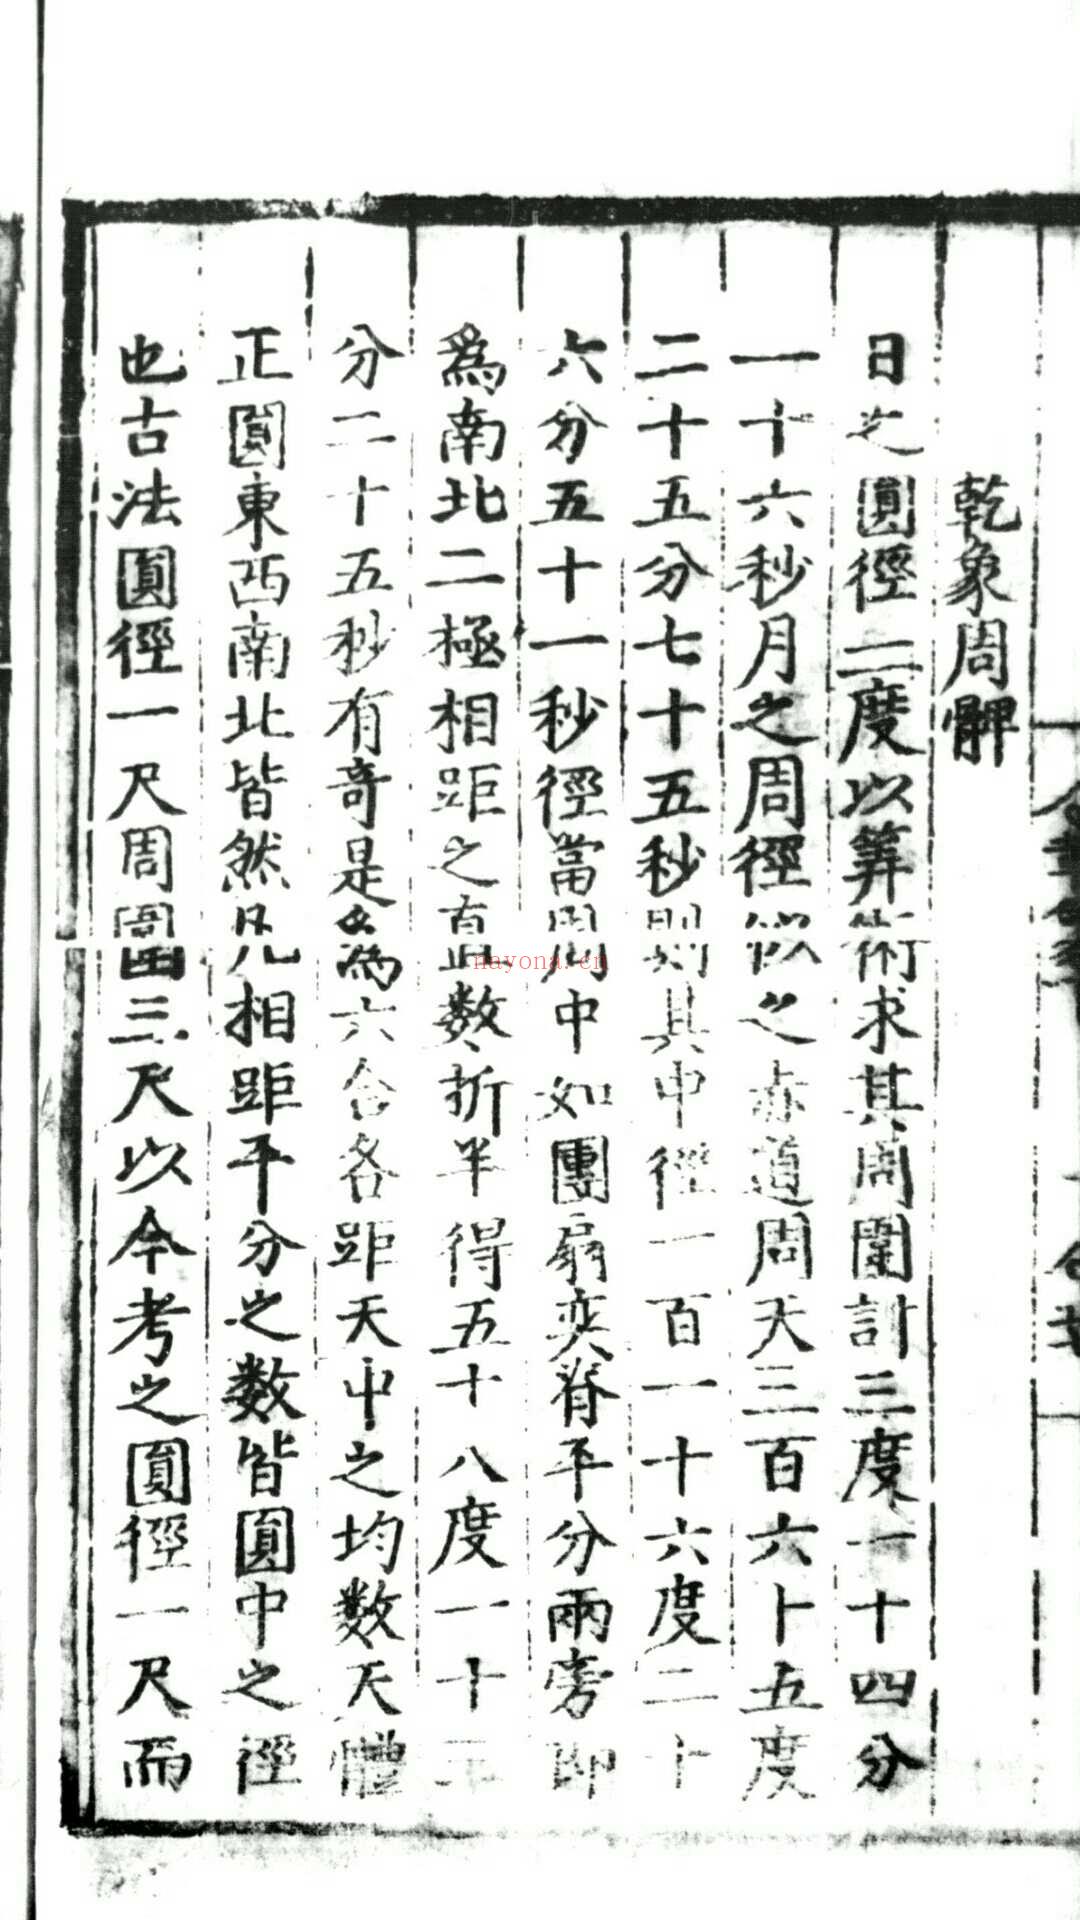 乾象周髀
日之圓徑二度以筭術求其周圍計三度一十四分
一十六秒月之周徑似之赤道周天三百六十五度
二十五分七十五秒則其中徑一百一十六度二十
六分五十一秒徑當周中如團扇奕脊平分兩旁即
為南北二極相距之直數折半得五十八度一十三
分二十五秒有奇是為六合各距天中之均數天體
正圓東西南北皆然凡相距平分之數皆圓中之徑
也古法圓徑一尺周圍三尺以今考之圓徑一尺而
nayona.cn